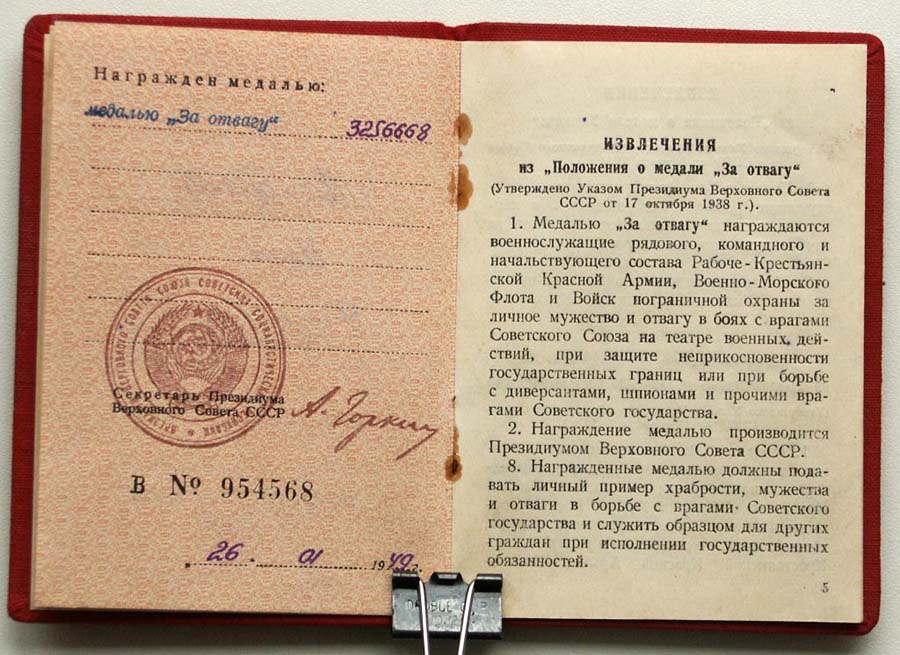 Награжден медалью:
медалью „За отвагу“ 3256668
Секретарь Президиума
Верховного Совета СССР А. Горкин
В № 954568
„ 26. 01 1949 г.
ИЗВЛЕЧЕНИЯ
из „Положения о медали „За отвагу“
(Утверждено Указом Президиума Верховного Совета
СССР от 17 октября 1938 г.).
1. Медалью „За отвагу“ награждаются
военнослужащие рядового, командного и
начальствующего состава Рабоче-Крестьян-
ской Красной Армии, Военно-Морского
Флота и Войск пограничной охраны за
личное мужество и отвагу в боях с врагами
Советского Союза на театре военных дей-
ствий, при защите неприкосновенности
государственных границ или при борьбе
с диверсантами, шпионами и прочими вра-
гами Советского государства.
2. Награждение медалью производится
Президиумом Верховного Совета СССР.
8. Награжденные медалью должны пода-
вать личный пример храбрости, мужества
и отваги в борьбе с врагами Советского
государства и служить образцом для других
граждан при исполнении государственных
обязанностей.
5